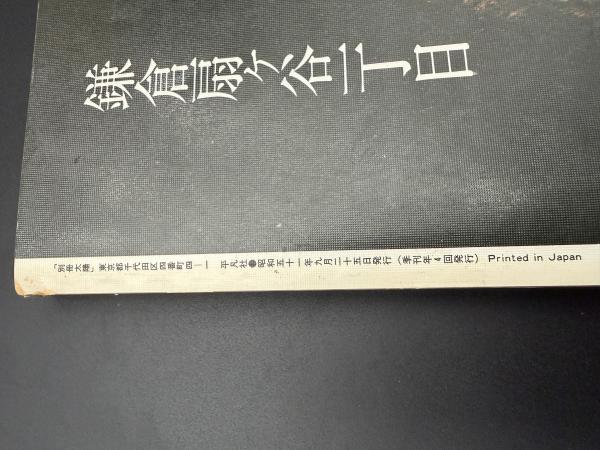 鎌倉扇ヶ谷一丁目
「別冊太陽」 東京都千代田区四番町四―一 平凡社●昭和五十一年九月二十五日発行(季刊年4回発行) Printed in Japan